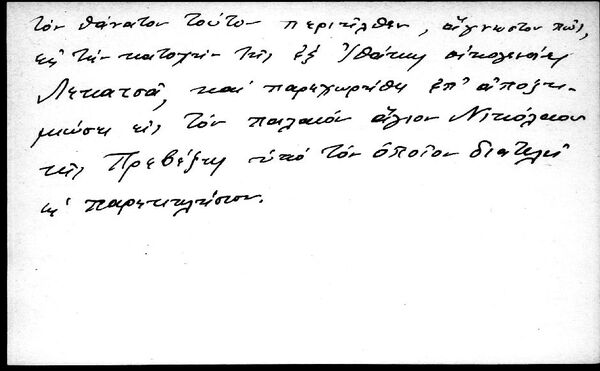 τὸν θάνατον τούτου περιῆλθεν, ἄγνωστον πῶς,
εἰς τὴν κατοχὴν τῆς ἐξ Ἰθάκης οἰκογενείας
Λεκατσᾶ, καὶ παρεχωρήθη ἐπ' ἀποζη-
μιώσει εἰς τὸν παλαιὸν ἅγιον Νικόλαον
τῆς Πρεβέζης ὑπὸ τὸν ὁποῖον διατελεῖ
ὡς παρεκκλήσιον.